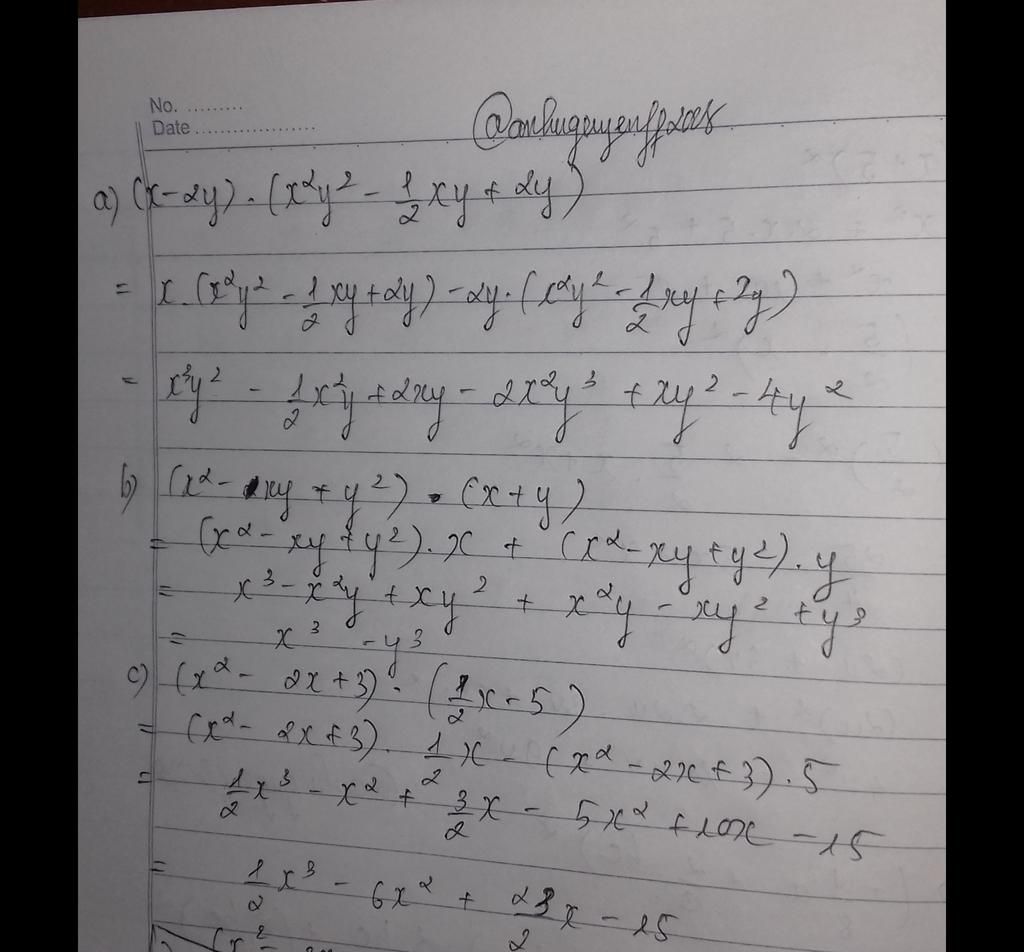 No. .........
Date ...................
@anhnguyenff2008
a) (x-2y) . (x²y² - 1/2 xy + 2y)
= x . (x²y² - 1/2 xy + 2y) - 2y . (x²y² - 1/2 xy + 2y)
= x³y² - 1/2 x²y + 2xy - 2x²y³ + xy² - 4y²
b) (x² - xy + y²) . (x + y)
= (x² - xy + y²) . x + (x² - xy + y²) . y
= x³ - x²y + xy² + x²y - xy² + y³
= x³ - y³
c) (x² - 2x + 3) . (1/2 x - 5)
= (x² - 2x + 3) . 1/2 x - (x² - 2x + 3) . 5
= 1/2 x³ - x² + 3/2 x - 5x² + 10x - 15
= 1/2 x³ - 6x² + 23/2 x - 15